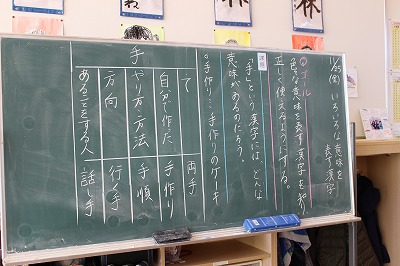 11/25(金) いろいろな意味を
表す漢字
ゴール
色々な意味を表す漢字を知り
正しく使えるようにする。
課題
「手」という漢字には、どんな
意味があるのだろう。
○手作り…手作りのケーキ
手
て 両手
自分で作った 手作り
やり方・方法 手順
方向 行く手
あることをする人 話し手
林